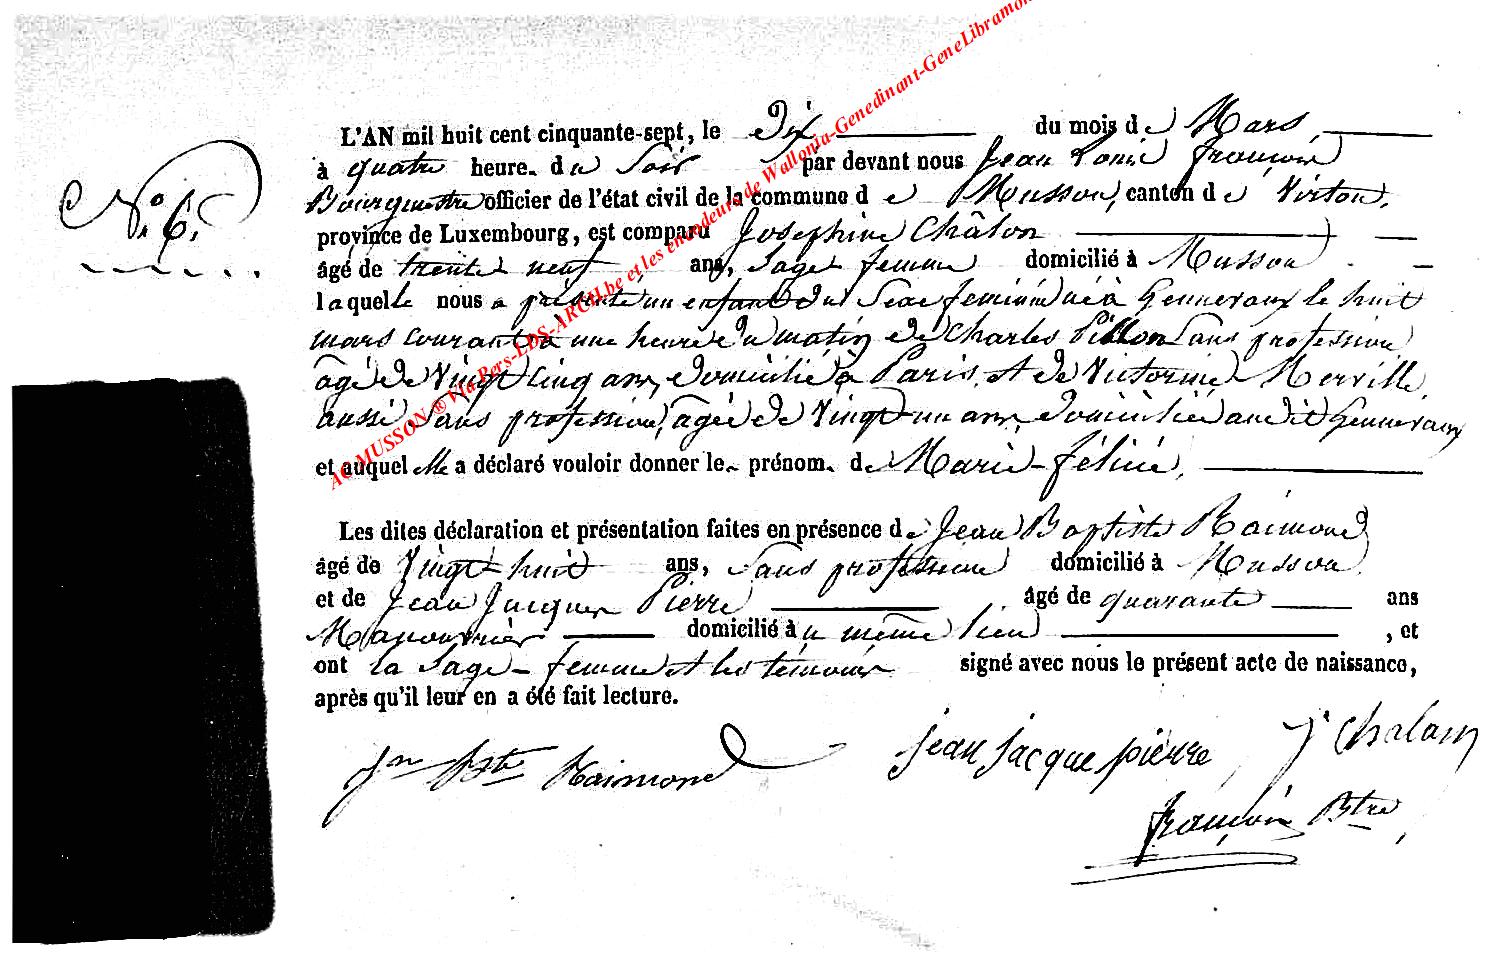 AC MUSSON ® Via Pers-LDS-ARCH.be et les encodeurs de Wallonia-Genedinant-GeneLibramon
N.° 6.
L'AN mil huit cent cinquante-sept, le Dix du mois de Mars
à quatre heure. du Soir par devant nous Jean Louis françois
Bourguestre officier de l'état civil de la commune de Musson, canton de Virton,
province de Luxembourg, est comparu Josephine Châlon
âgé de trente neuf ans, Sage femme domicilié à Musson
laquelle nous a présenté un enfant du Sexe feminin né à Gennevaux le huit
mars courant à une heure du matin de Charles Pillon Sans profession
âgé de Vingt cinq ans, domicilié à Paris, et de Victorine Merville
aussi Sans profession, âgée de Vingt un ans, domiciliée au dit Gennevaux
et auquel elle a déclaré vouloir donner le prénom. de Marie-féline,
Les dites déclaration et présentation faites en présence de Jean Baptiste Raimond
âgé de Vingt-huit ans, Sans profession domicilié à Musson
et de Jean Jacques Pierre âgé de quarante ans
Manouvrier domicilié au même lieu , et
ont la Sage-femme et les témoins signé avec nous le présent acte de naissance,
après qu'il leur en a été fait lecture.
Jn Bte Raimond jean jacque pierre J Chalon
françois Btre